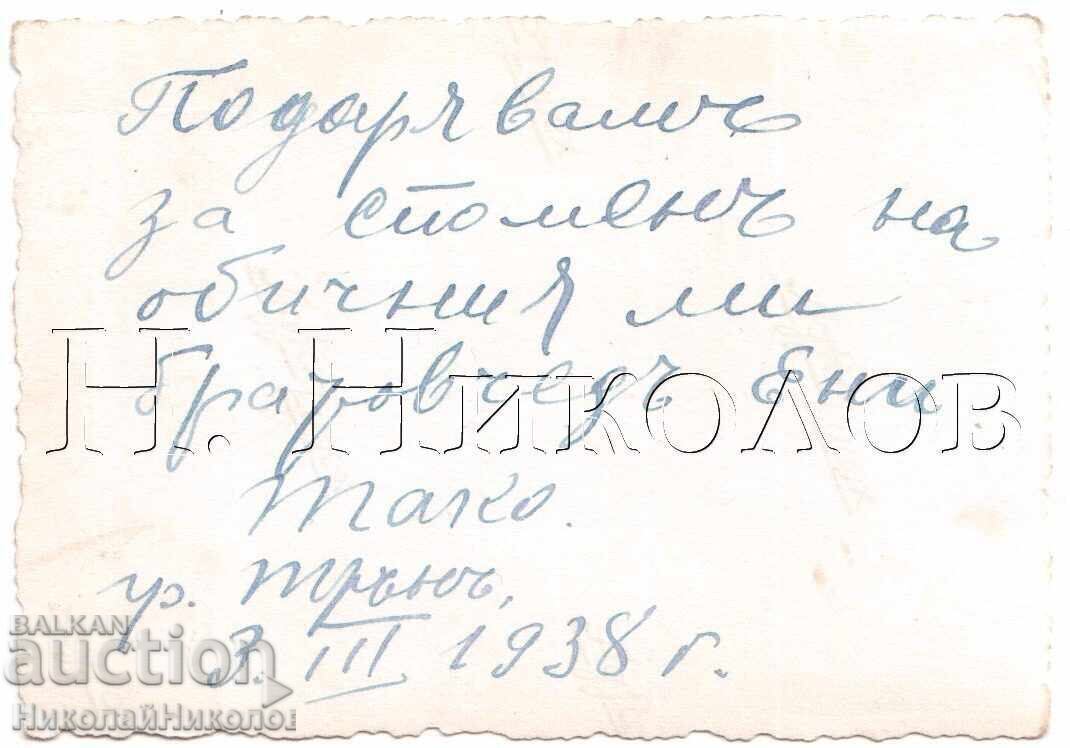 Подарявамъ
за споменъ на
обичния ми
братовчедъ Ени
Тако.
гр. Трънъ,
3. III 1938 г.
Н. Николов
BALKAN
auction
НиколайНиколов